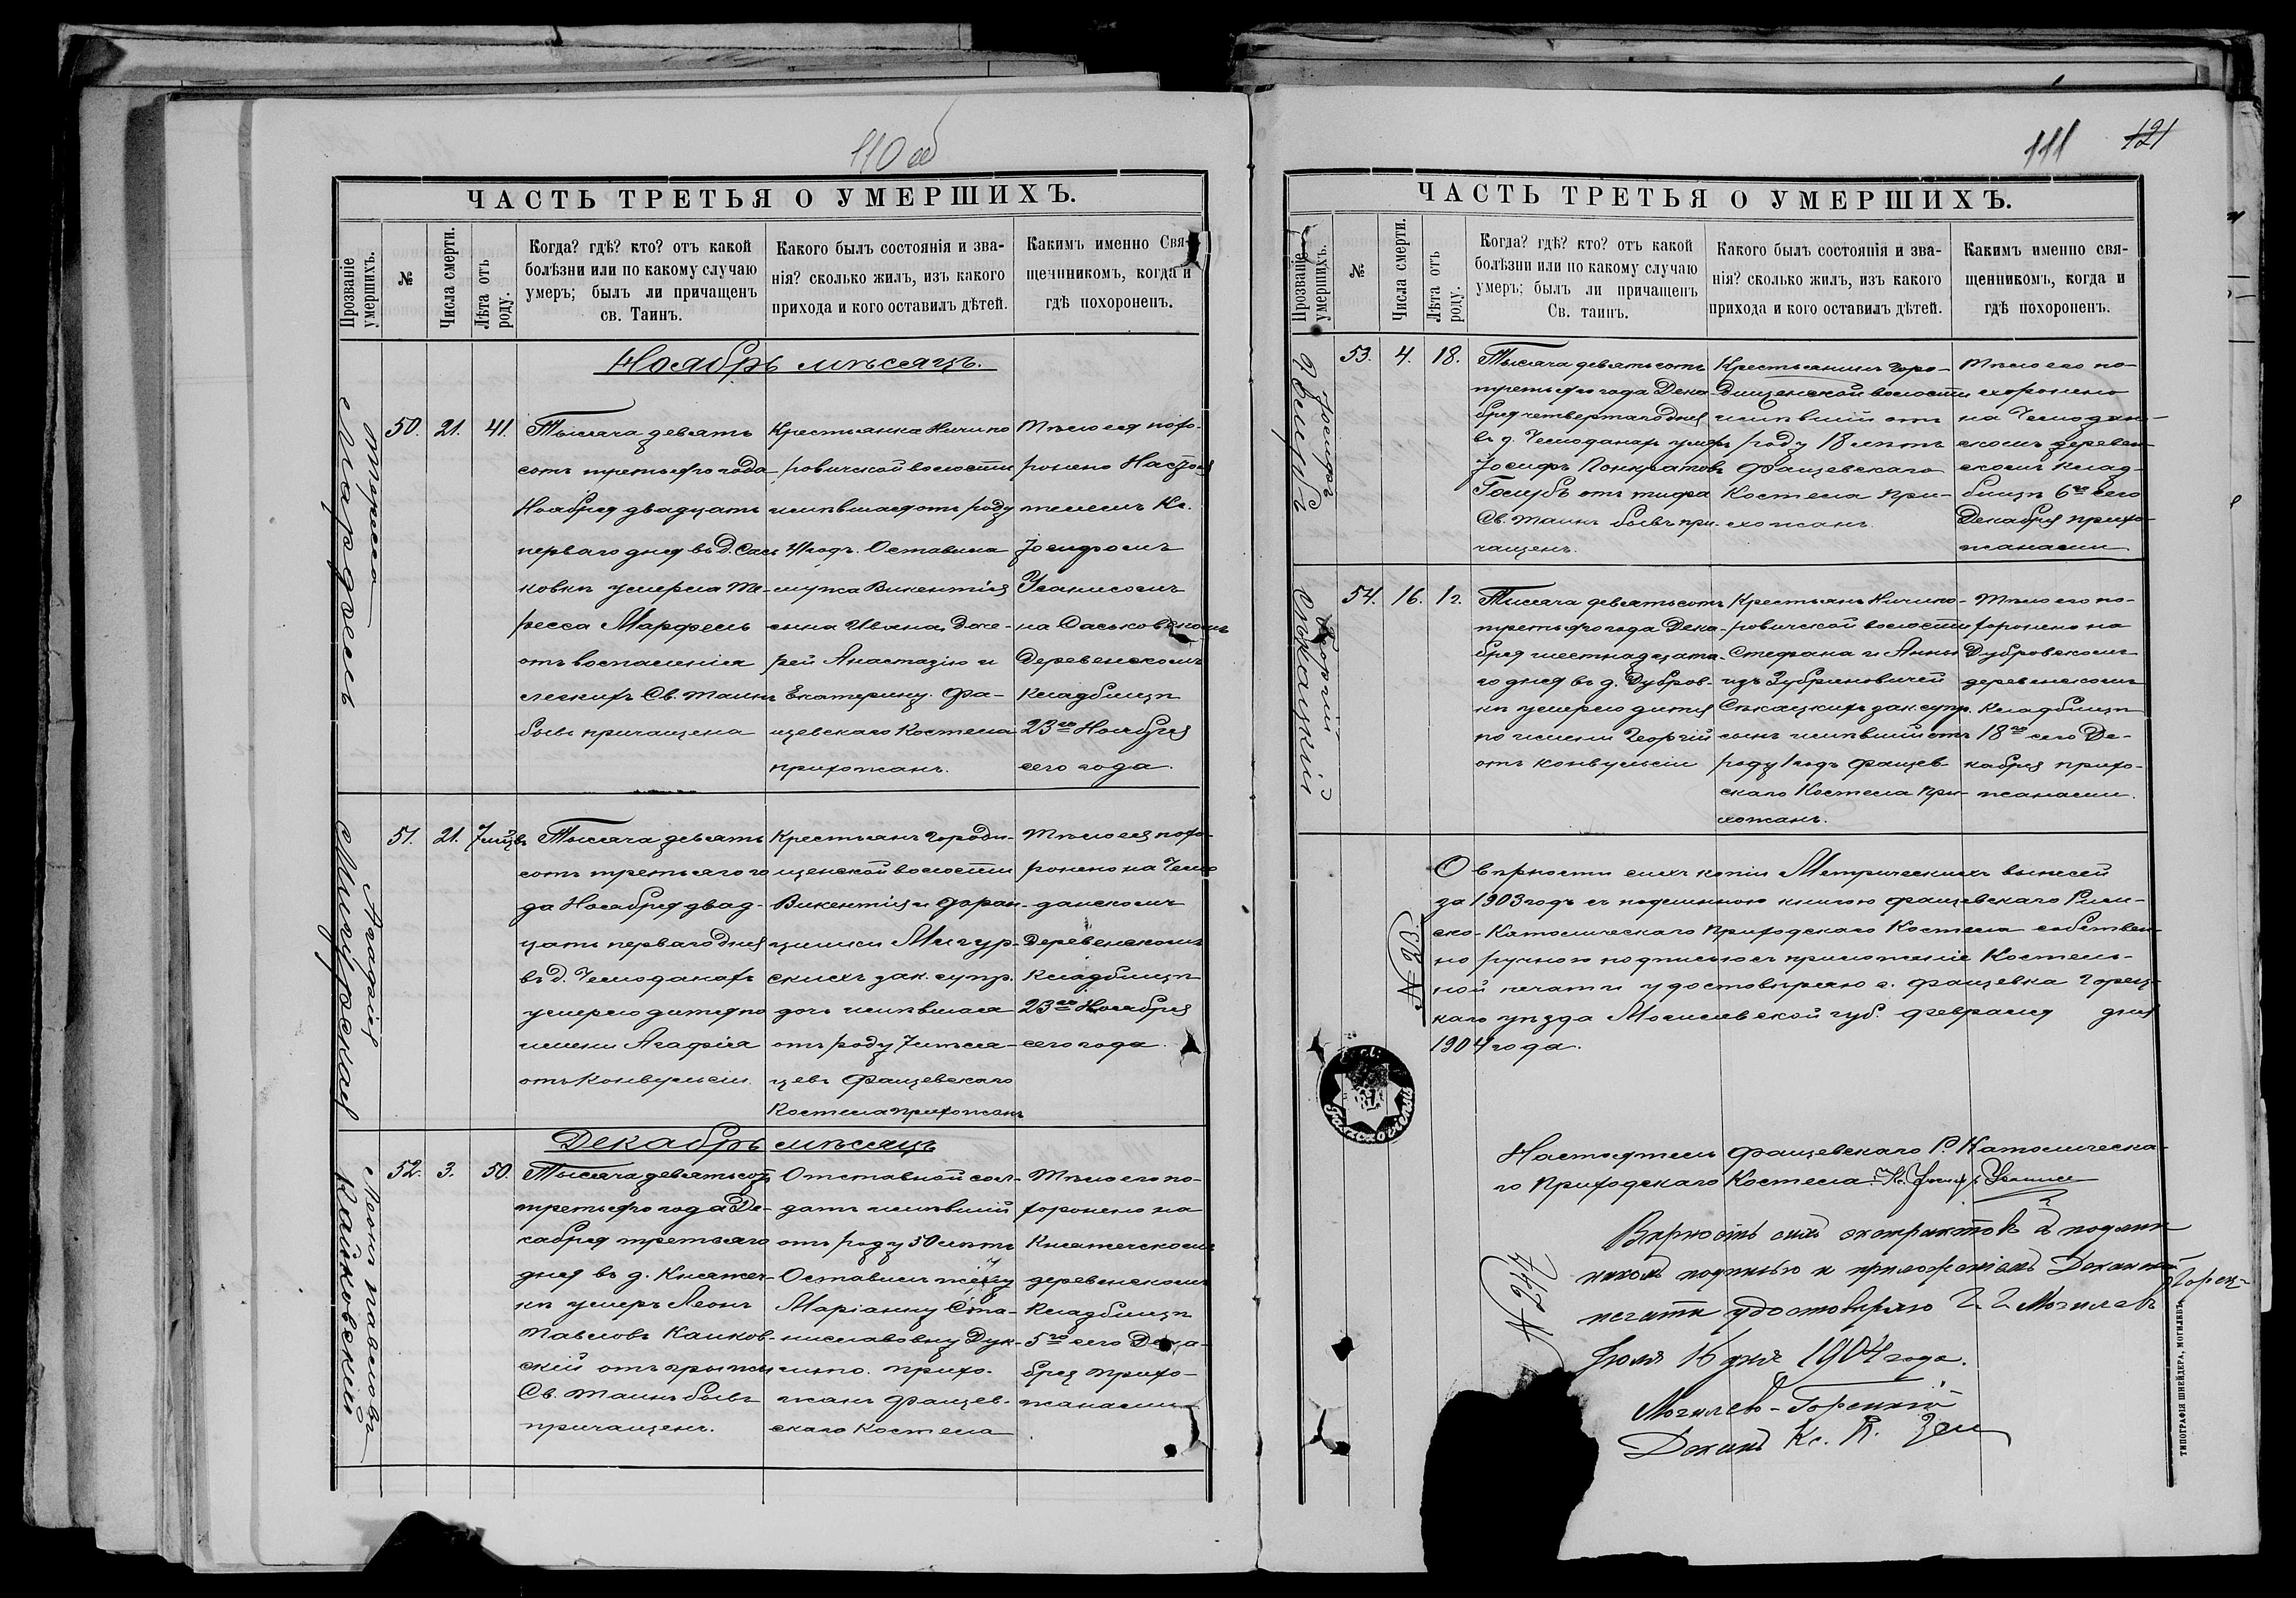 110 об
ЧАСТЬ ТРЕТЬЯ О УМЕРШИХЪ.
Прозваніе умершихъ.
№
Числа смерти.
Лѣта отъ роду.
Когда? гдѣ? кто? отъ какой
болѣзни или по какому случаю
умеръ; былъ ли причащенъ
св. Таинъ.
Какого былъ состоянія и зва-
нія? сколько жилъ, изъ какого
прихода и кого оставилъ дѣтей.
Какимъ именно Свя-
щенникомъ, когда и
гдѣ похороненъ.
Ноябрь мѣсяцъ.
50. 21. 41.
Тысяча девять
сотъ третьяго года
Ноября двадцать
перваго дня въ д. Сась
ковкѣ умерла Те-
ресса Марфель
отъ воспаленія
легкихъ Св. Таинъ
бывъ причащена
Крестьянка Ничипо
ровичской волости
жившая отъ роду
41 годъ. Оставила
мужа Викентія
сына Ивана, доче-
рей Анастазію и
Екатерину. Фа-
щевскаго Костела
прихожанъ.
Тѣло ея похо-
ронено Настоя
телемъ Кс.
Іосифомъ
на Саськовскомъ
деревенскомъ
кладбищѣ
23го Ноября
сего года.
51. 21. 7 мѣцъ
Агафія
Мигурская
Тысяча девять
сотъ третьяго го
да Ноября двад-
цать перваго дня
въ д. Чемоданахъ
умерло дитя по
имени Агафія
отъ конвульсіи.
Крестьянъ Городи-
щенской волости
Викентія и Фран-
цишки Мигур-
скихъ зак. супр.
дочь жившая
отъ роду 7 мѣся-
цевъ Фащевскаго
Костела прихожанъ
Тѣло ея похо-
ронено на Чемо
данскомъ
деревенскомъ
кладбищѣ
23го Ноября
сего года.
Декабрь мѣсяцъ
52. 3. 50.
Леонъ Павловъ
Кайковскій
Тысяча девятьсотъ
третьяго года Де-
кабря третьяго
дня въ д. Княжи-
цѣ умеръ Леонъ
Павловъ Кайков-
скій отъ грыжи
Св. Таинъ бывъ
причащенъ.
Отставной сол-
датъ жившій
отъ роду 50 лѣтъ
Оставилъ жену
Маріанну Ста-
ниславовну
прихо-
жанъ Фащев-
скаго Костела
Тѣло его по-
хоронено на
деревенскомъ
кладбищѣ
5го сего Дека-
бря прихо-
жанами
111 121
ЧАСТЬ ТРЕТЬЯ О УМЕРШИХЪ.
Прозваніе умершихъ.
№
Числа смерти.
Лѣта отъ роду.
Когда? гдѣ? кто? отъ какой
болѣзни или по какому случаю
умеръ; былъ ли причащенъ
Св. таинъ.
Какого былъ состоянія и зва-
нія? сколько жилъ, изъ какого
прихода и кого оставилъ дѣтей.
Какимъ именно свя-
щенникомъ, когда и
гдѣ похороненъ.
53. 4. 18.
Іосифъ
Тысяча девятьсотъ
третьяго года Дека
бря четвертаго дня
въ д. Чемоданахъ умеръ
Іосифъ Панкратовъ
Голубъ отъ тифа
Св. Таинъ бывъ при-
чащенъ.
Крестьянинъ Горо-
дищенской волости
жившій отъ
роду 18 лѣтъ
Фащевскаго
Костела при-
хожанъ.
Тѣло его по-
хоронено
на Чемодан-
скомъ деревен-
скомъ клад-
бищѣ 6го сего
Декабря прихо-
жанами
54. 16. 1 г.
Георгій
Сѣкацкій
Тысяча девятьсотъ
третьяго года Дека-
бря шестнадцата-
го дня въ д. Дубров-
кѣ умерло дитя
по имени Георгій
отъ конвульсіи
Крестьянъ Ничипо-
ровичской волости
Стефана и Анны
изъ Зубриновичей
Сѣкацкихъ зак. супр.
сынъ жившій отъ
роду 1 годъ Фащев-
скаго Костела при-
хожанъ.
Тѣло его по-
хоронено на
Дубровскомъ
деревенскомъ
кладбищѣ
18го сего Де-
кабря прихо-
жанами.
№ 23.
О вѣрности сихъ копіи Метрическихъ
за 1903 годъ съ подлинною книгою Фащевскаго Рим-
ско-Католическаго Приходскаго Костела собствен-
но ручною подписью съ приложеніе Костель-
ной печати удостовѣряю с. Фащевка Горец-
каго уѣзда Могилевской губ. Февраля дня
1904 года.
Настоятель Фащевскаго Р. Католическа-
го Приходскаго Костела Кс.
Вѣрность сихъ экстрактовъ съ подлин
никомъ подписью и приложеніемъ
печати удостовѣряю Г. Могилевъ
Іюля 16 дня 1904 года.
Могилево-Горецкій
Деканъ Кс.
ТИПОГРАФІЯ ШНЕЙДЕРА, МОГИЛЕВЪ.